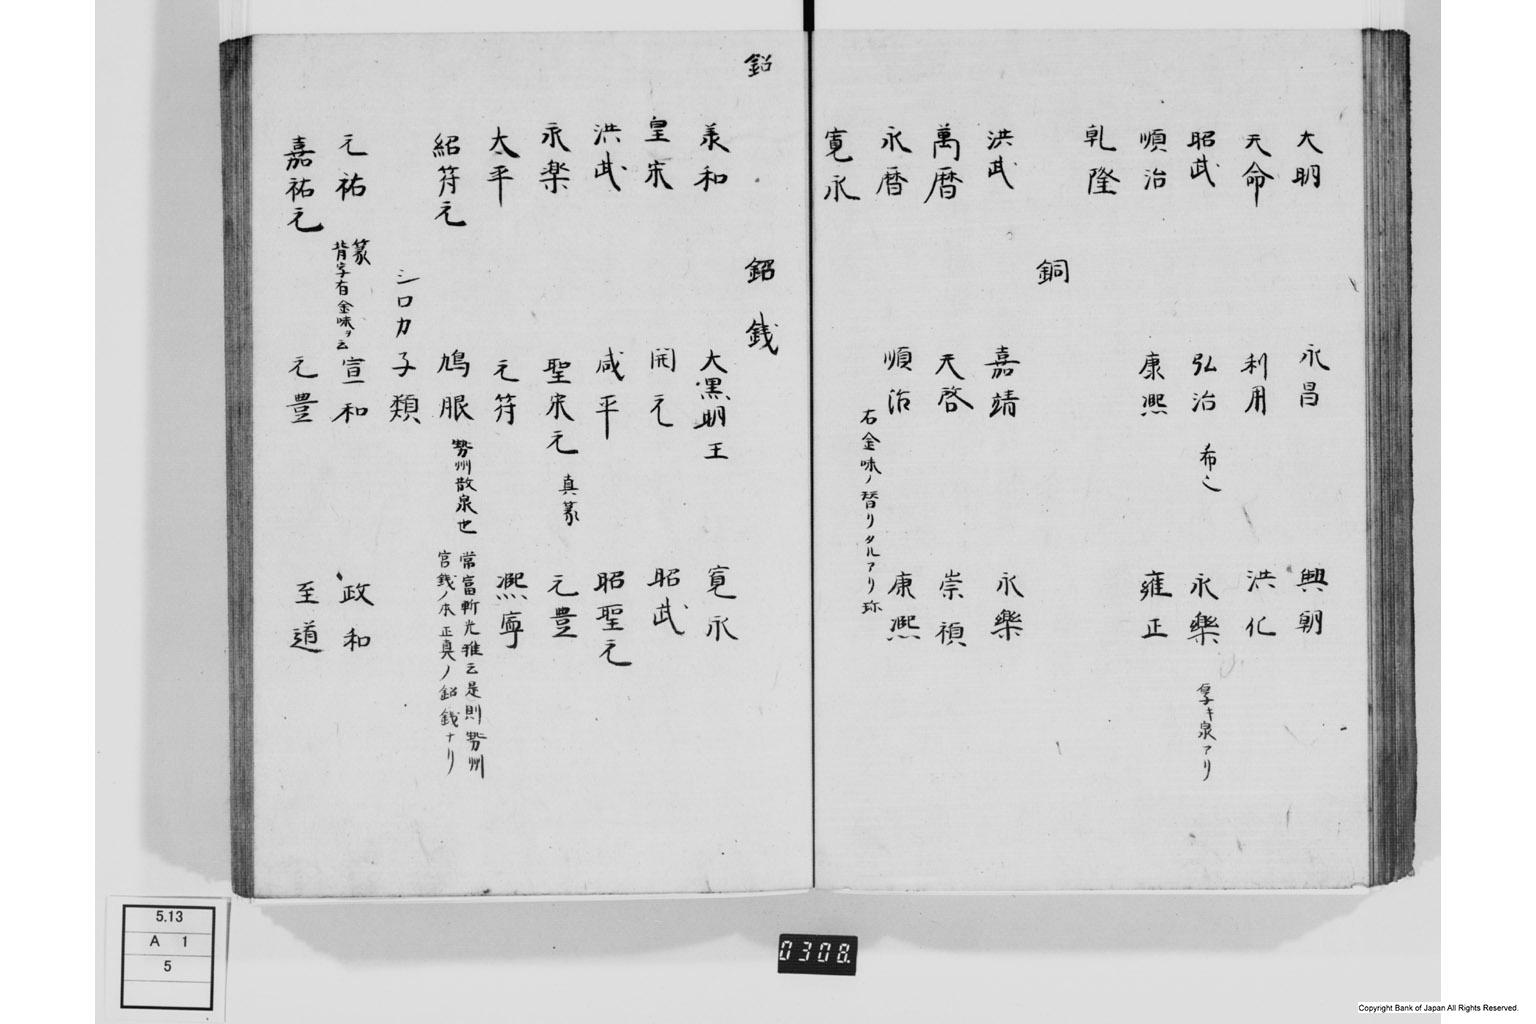 大明 永昌 興朝
天命 利用 洪化
昭武 弘治 布之 永樂 厚キ泉アリ
順治 康熈 雍正
乾隆
銅
洪武 嘉靖 永樂
萬暦 天啓 崇禎
永暦 順治 康熈
石金味ノ替リタルアリ珎
寛永
鉊
鉊銭
義和 大黒明王 寛永
皇宋 開元 昭武
洪武 咸平 昭聖元
永楽 聖宋元 真篆 元豊
太平 元符 熈寧
紹符元 鳩眼 勢州散泉也
常富斬光雅云是則勢州
官銭ノ本正真ノ鉊銭ナリ
シロカ子類
元祐 篆 背字有金味ヲ云 宣和 政和
嘉祐元 元豊 至道
5.13
A 1
5
0308.
Copyright Bank of Japan All Rights Reserved.